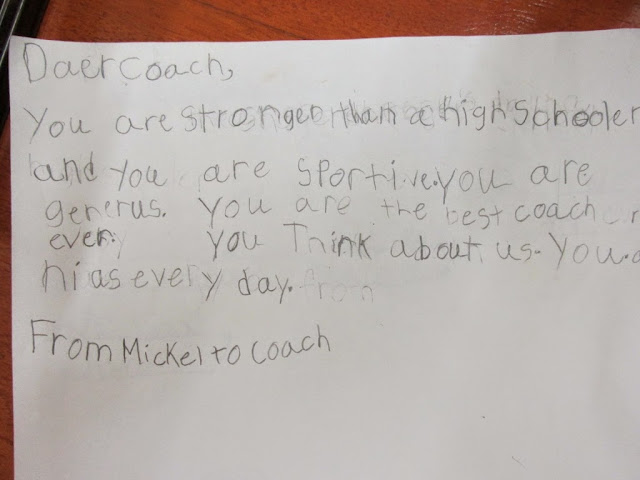 Daer coach,
You are stronger than a high schooler
and you are sportive. you are
generus. you are the best coach
ever. you Think about us. You.a
hias every day.
From Mickel to coach